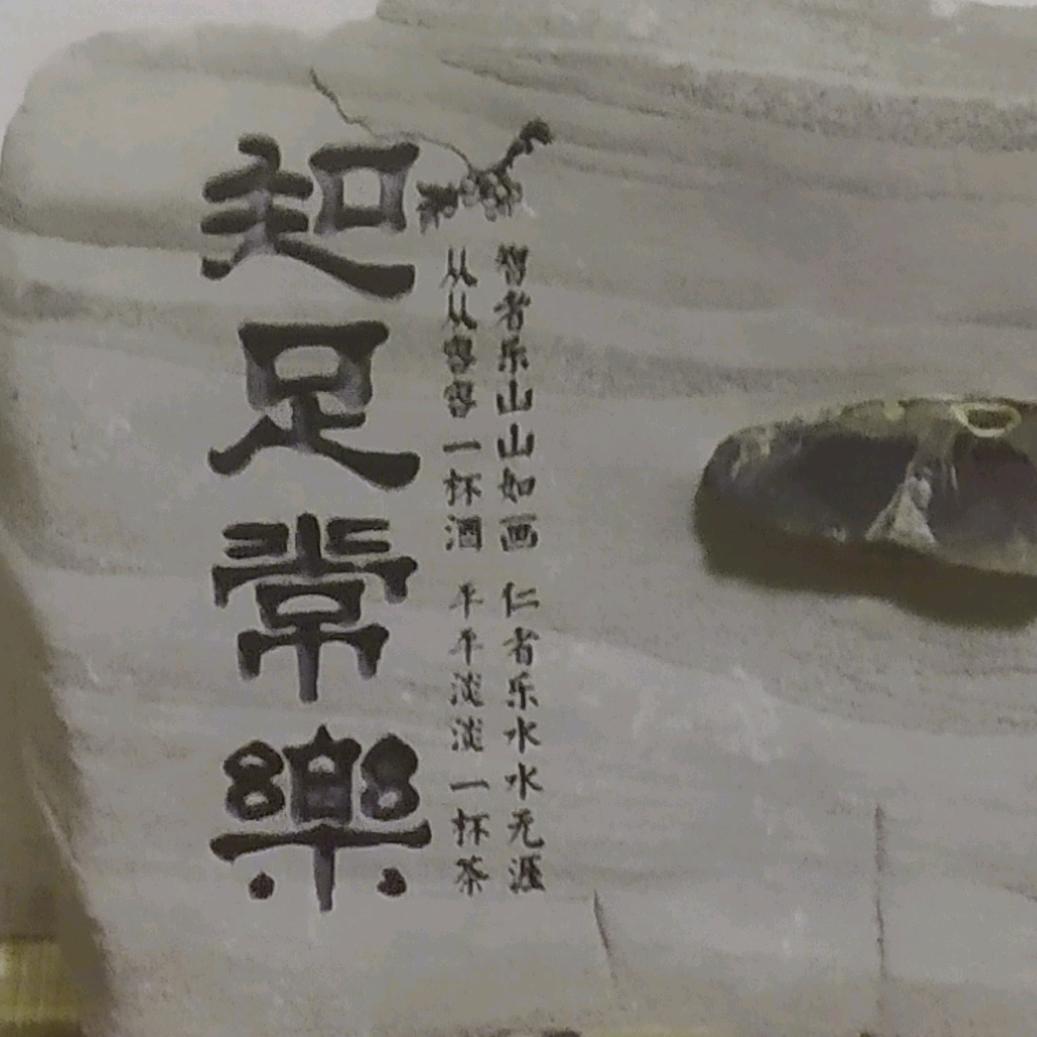 知足常樂
智者乐山山如画 仁者乐水水无涯
从从容容一杯酒 平平淡淡一杯茶